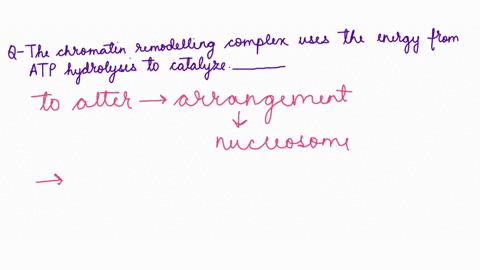 Q- The chromatin remodelling complex uses the energy from
ATP hydrolysis to catalyze. ______
to alter → arrangement
↓
nucleosome
→